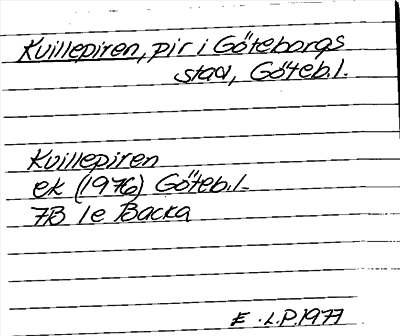 Kvillepiren, pir i Göteborgs
stad, Göteb.l.
Kvillepiren
ek (1976) Göteb.l.
7B 1e Backa
E.L.P.1977